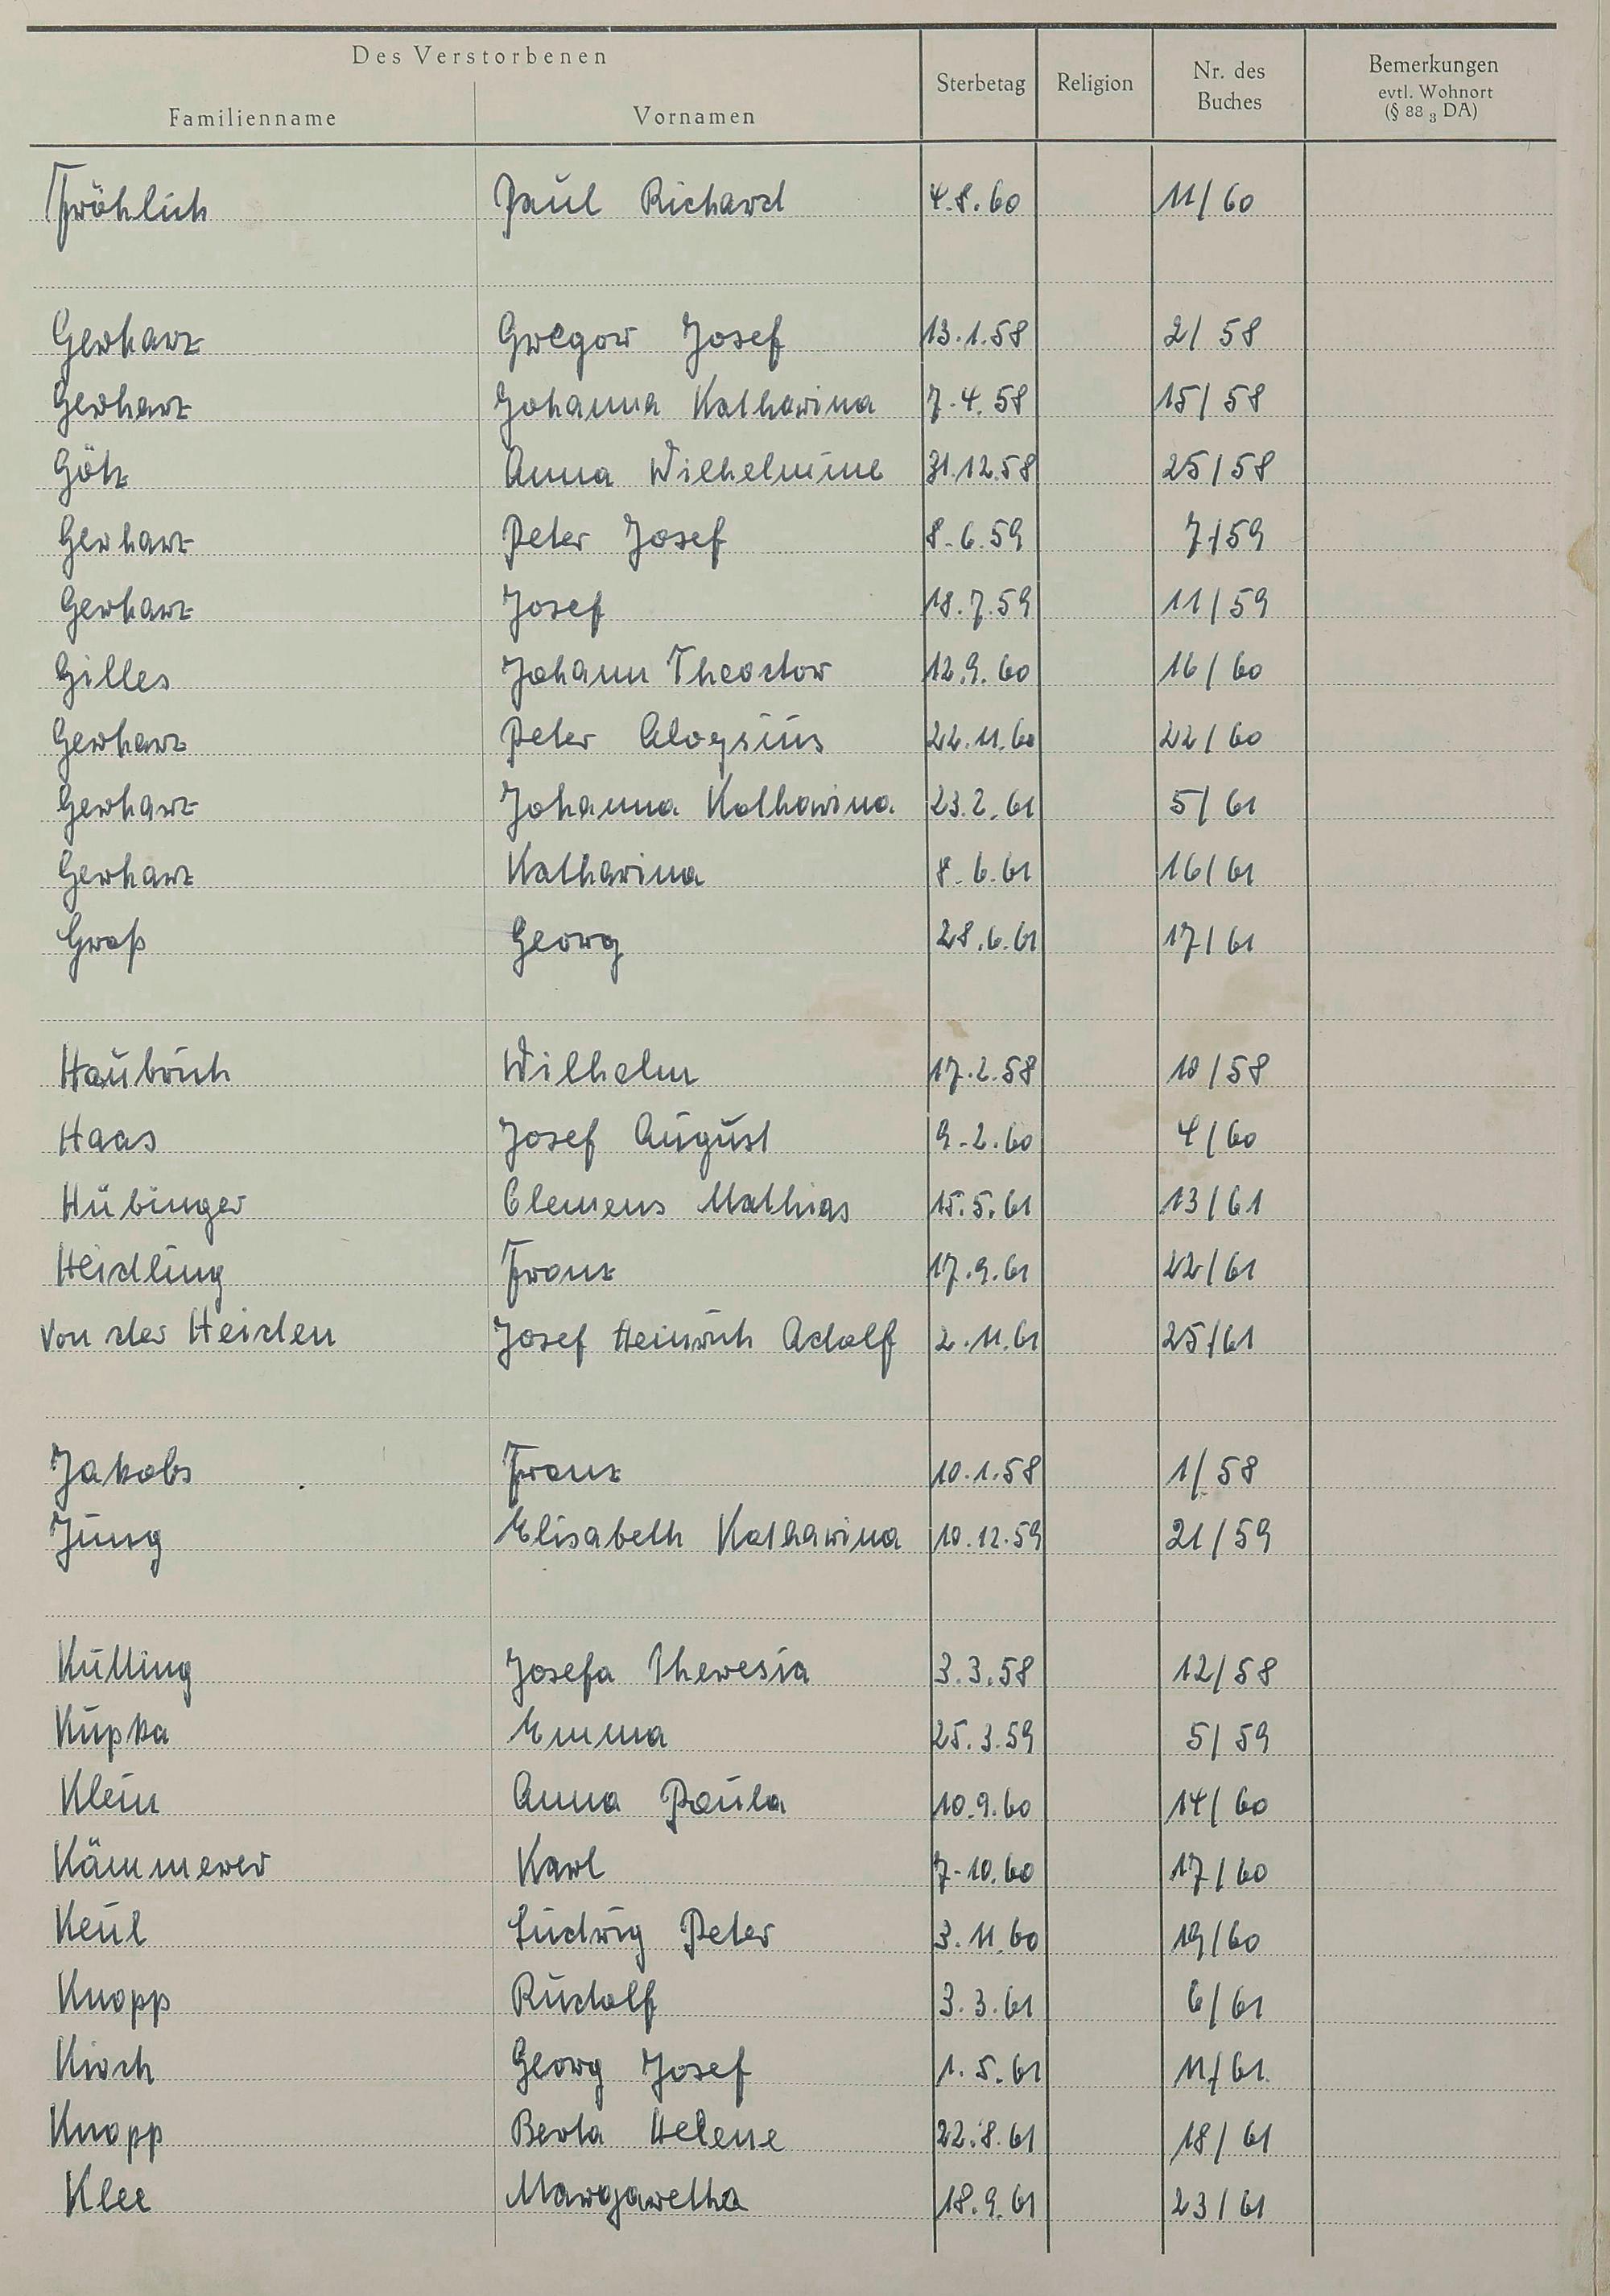 Des Verstorbenen
Familienname Vornamen Sterbetag Religion Nr. des Buches Bemerkungen evtl. Wohnort (§ 88 3 DA)
Fröhlich Paul Richard 4.8.60 11/60
Gerharz Gregor Josef 13.1.58 2/58
Gerharz Johanna Katharina 7.4.58 15/58
Götz Anna Wilhelmine 31.12.58 25/58
Gerharz Peter Josef 8.6.59 7/59
Gerharz Josef 18.7.59 11/59
Gilles Johann Theodor 12.9.60 16/60
Gerharz Peter Aloysius 22.11.60 22/60
Gerharz Johanna Katharina 23.2.61 5/61
Gerharz Katharina 8.6.61 16/61
Groß Georg 28.6.61 17/61
Haubrich Wilhelm 17.2.58 10/58
Haas Josef August 9.2.60 4/60
Hübinger Clemens Mathias 15.5.61 13/61
Heidling Franz 17.9.61 22/61
Von der Heiden Josef Heinrich Adolf 2.11.61 25/61
Jakobs Franz 10.1.58 1/58
Jung Elisabeth Katharina 10.12.59 21/59
Külling Josefa Theresia 3.3.58 12/58
Kupka Emma 25.3.59 5/59
Klein Anna Paula 10.9.60 14/60
Kämmerer Karl 7.10.60 17/60
Keul Ludwig Peter 3.11.60 19/60
Knopp Rudolf 3.3.61 6/61
Kirch Georg Josef 1.5.61 11/61
Knopp Berta Helene 22.8.61 18/61
Klee Margaretha 18.9.61 23/61